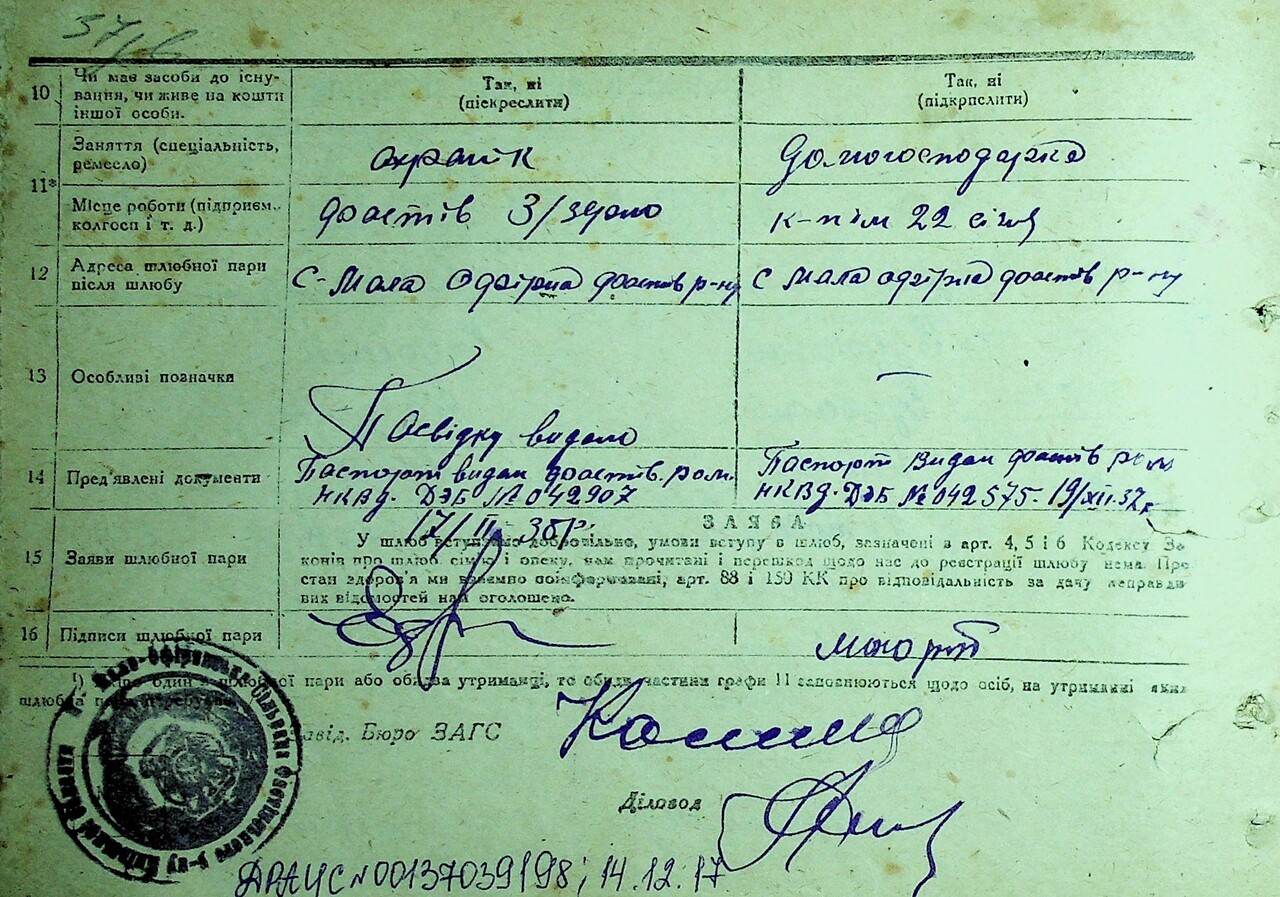 57/в
10 Чи має засоби до існу-
вання, чи живе на кошти
іншої особи.
Так, ні
(піскреслити)
Так, ні
(підкрпслити)
11* Заняття (спеціальність,
ремесло)
Домогосподарка
Місце роботи (підприєм.,
колгосп і т. д.)
Фастів З/
к-п ім 22 січня
12 Адреса шлюбної пари
після шлюбу
с-Мала Офірна Фастів р-ну
с Мала Офірна Фастів р-ну
13 Особливі позначки
Посвідку видано
—
14 Пред'явлені документи
Паспорт видан Фастів. ром.
НКВД. ДЭБ № 042907
17/II-38р.
Паспорт видан Фастів ром
НКВД. ДЭБ № 042575. 19/XII.37р
15 Заяви шлюбної пари
ЗАЯВА
У шлюб вступаємо добровільно, умови вступу в шлюб, зазначені в арт. 4, 5 і 6 Кодексу За
конів про шлюб сім'ю і опеку, нам прочитані і перешкод щодо нас до реєстрації шлюбу нема. Про
стан здоров'я ми взаємно поінформовані, арт. 88 і 150 КК про відповідальність за дачу неправди
вих відомостей нам оголошено.
16 Підписи шлюбної пари
¹) Якщо один з шлюбної пари або обидва утриманці, то обидві частини графи 11 заповнюються щодо осіб, на утриманні яких
шлюбна пара перебуває
Завід. Бюро ЗАГС
Діловод
ДРАЦС N00137039198; 14.12.17